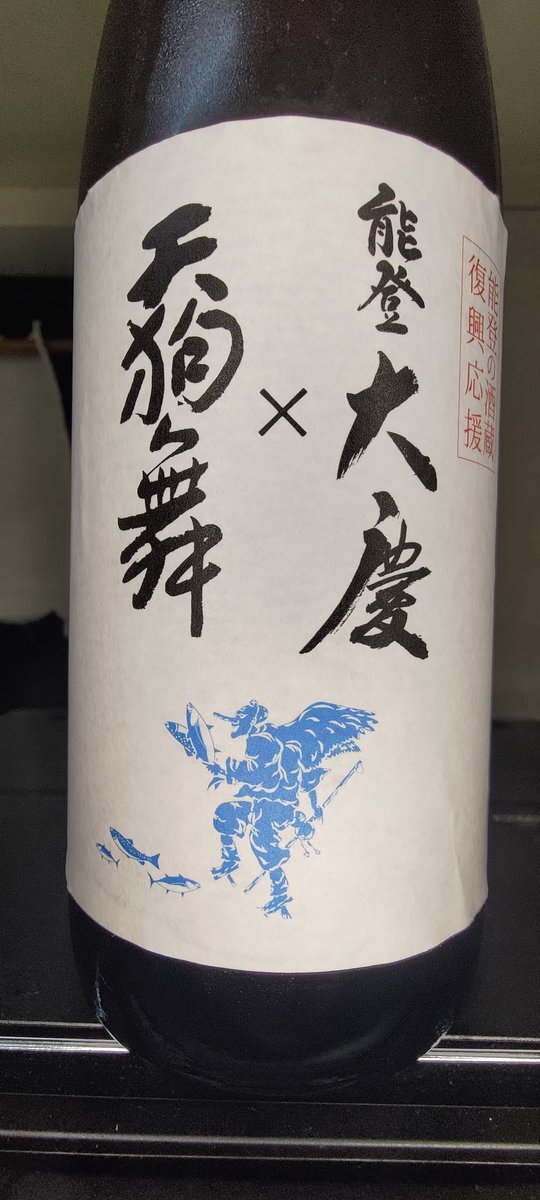 能登の酒蔵
復興応援
能登
大慶
×
天狗舞